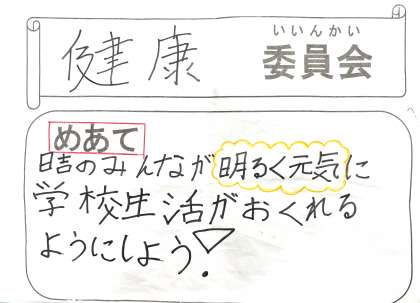 いいんかい
健康 委員会
めあて
日吉のみんなが明るく元気に
学校生活がおくれる
ようにしよう!